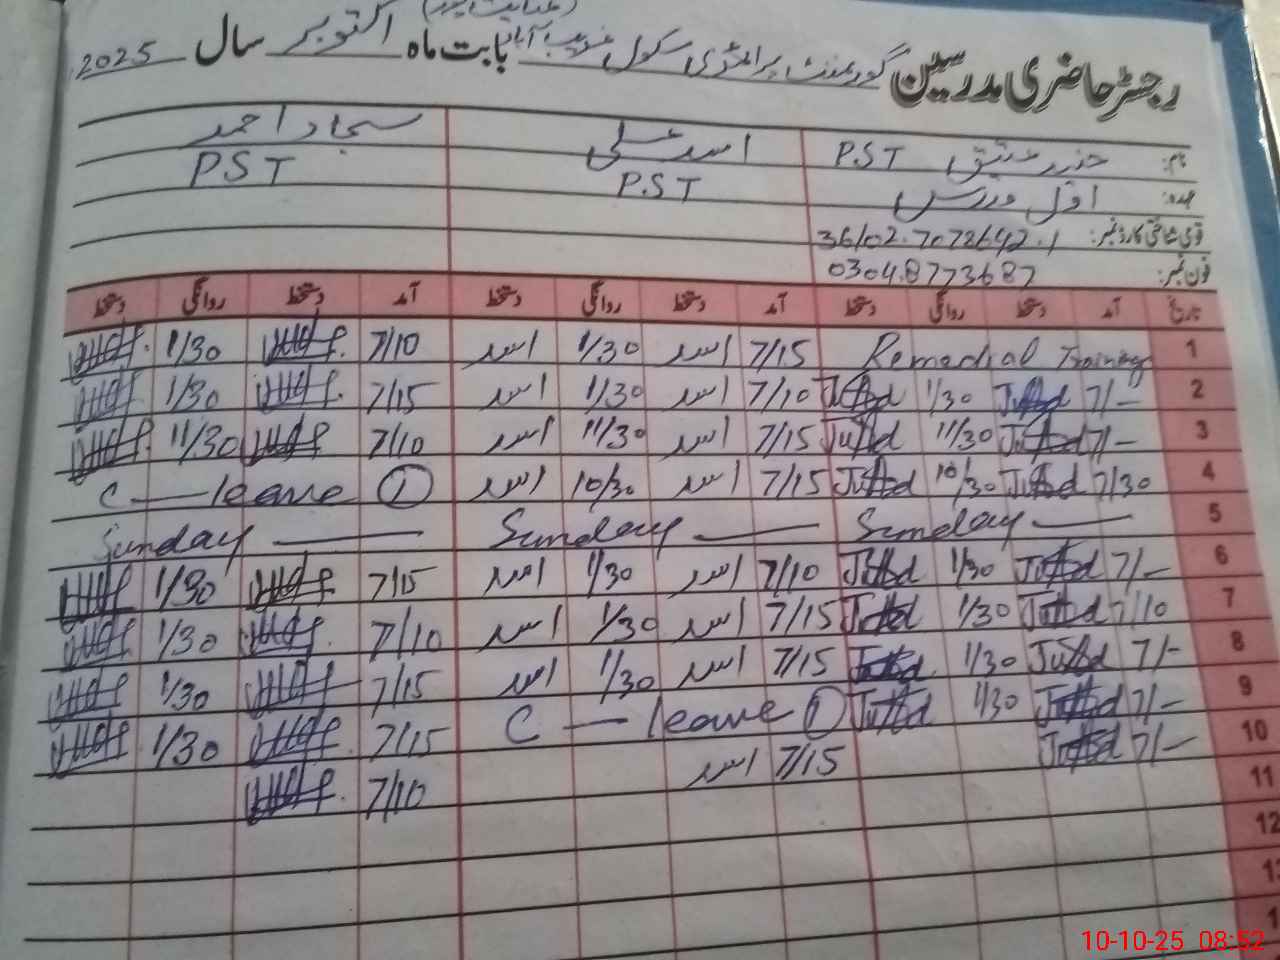 رجسٹر حاضری مدرسین گورنمنٹ پرائمری سکول غریب آباد بابت ماہ اکتوبر سال 2025
نام: P.S.T اسد علی سجاد احمد
عہدہ: اول مدرس P.S.T P.S.T
قومی شناختی کارڈ نمبر: 36102.7072642.1
فون نمبر: 0304.8773687
تاریخ آمد دستخط روانگی دستخط آمد دستخط روانگی دستخط آمد دستخط روانگی دستخط
1 Remedial Training 7/15 اسد 1/30 اسد 7/10 1/30
2 7/- 1/30 7/10 اسد 1/30 اسد 7/15 1/30
3 7/- 11/30 7/15 اسد 11/30 اسد 7/10 11/30
4 7/30 10/30 7/15 اسد 10/30 اسد C — leave ①
5 Sunday — Sunday — Sunday —
6 7/- 1/30 7/10 اسد 1/30 اسد 7/15 1/30
7 7/10 1/30 7/15 اسد 1/30 اسد 7/10 1/30
8 7/- 1/30 7/15 اسد 1/30 اسد 7/15 1/30
9 7/- 1/30 C — leave ① 7/15 1/30
10 7/- 7/15 اسد 7/10
11
12
10-10-25 08:52